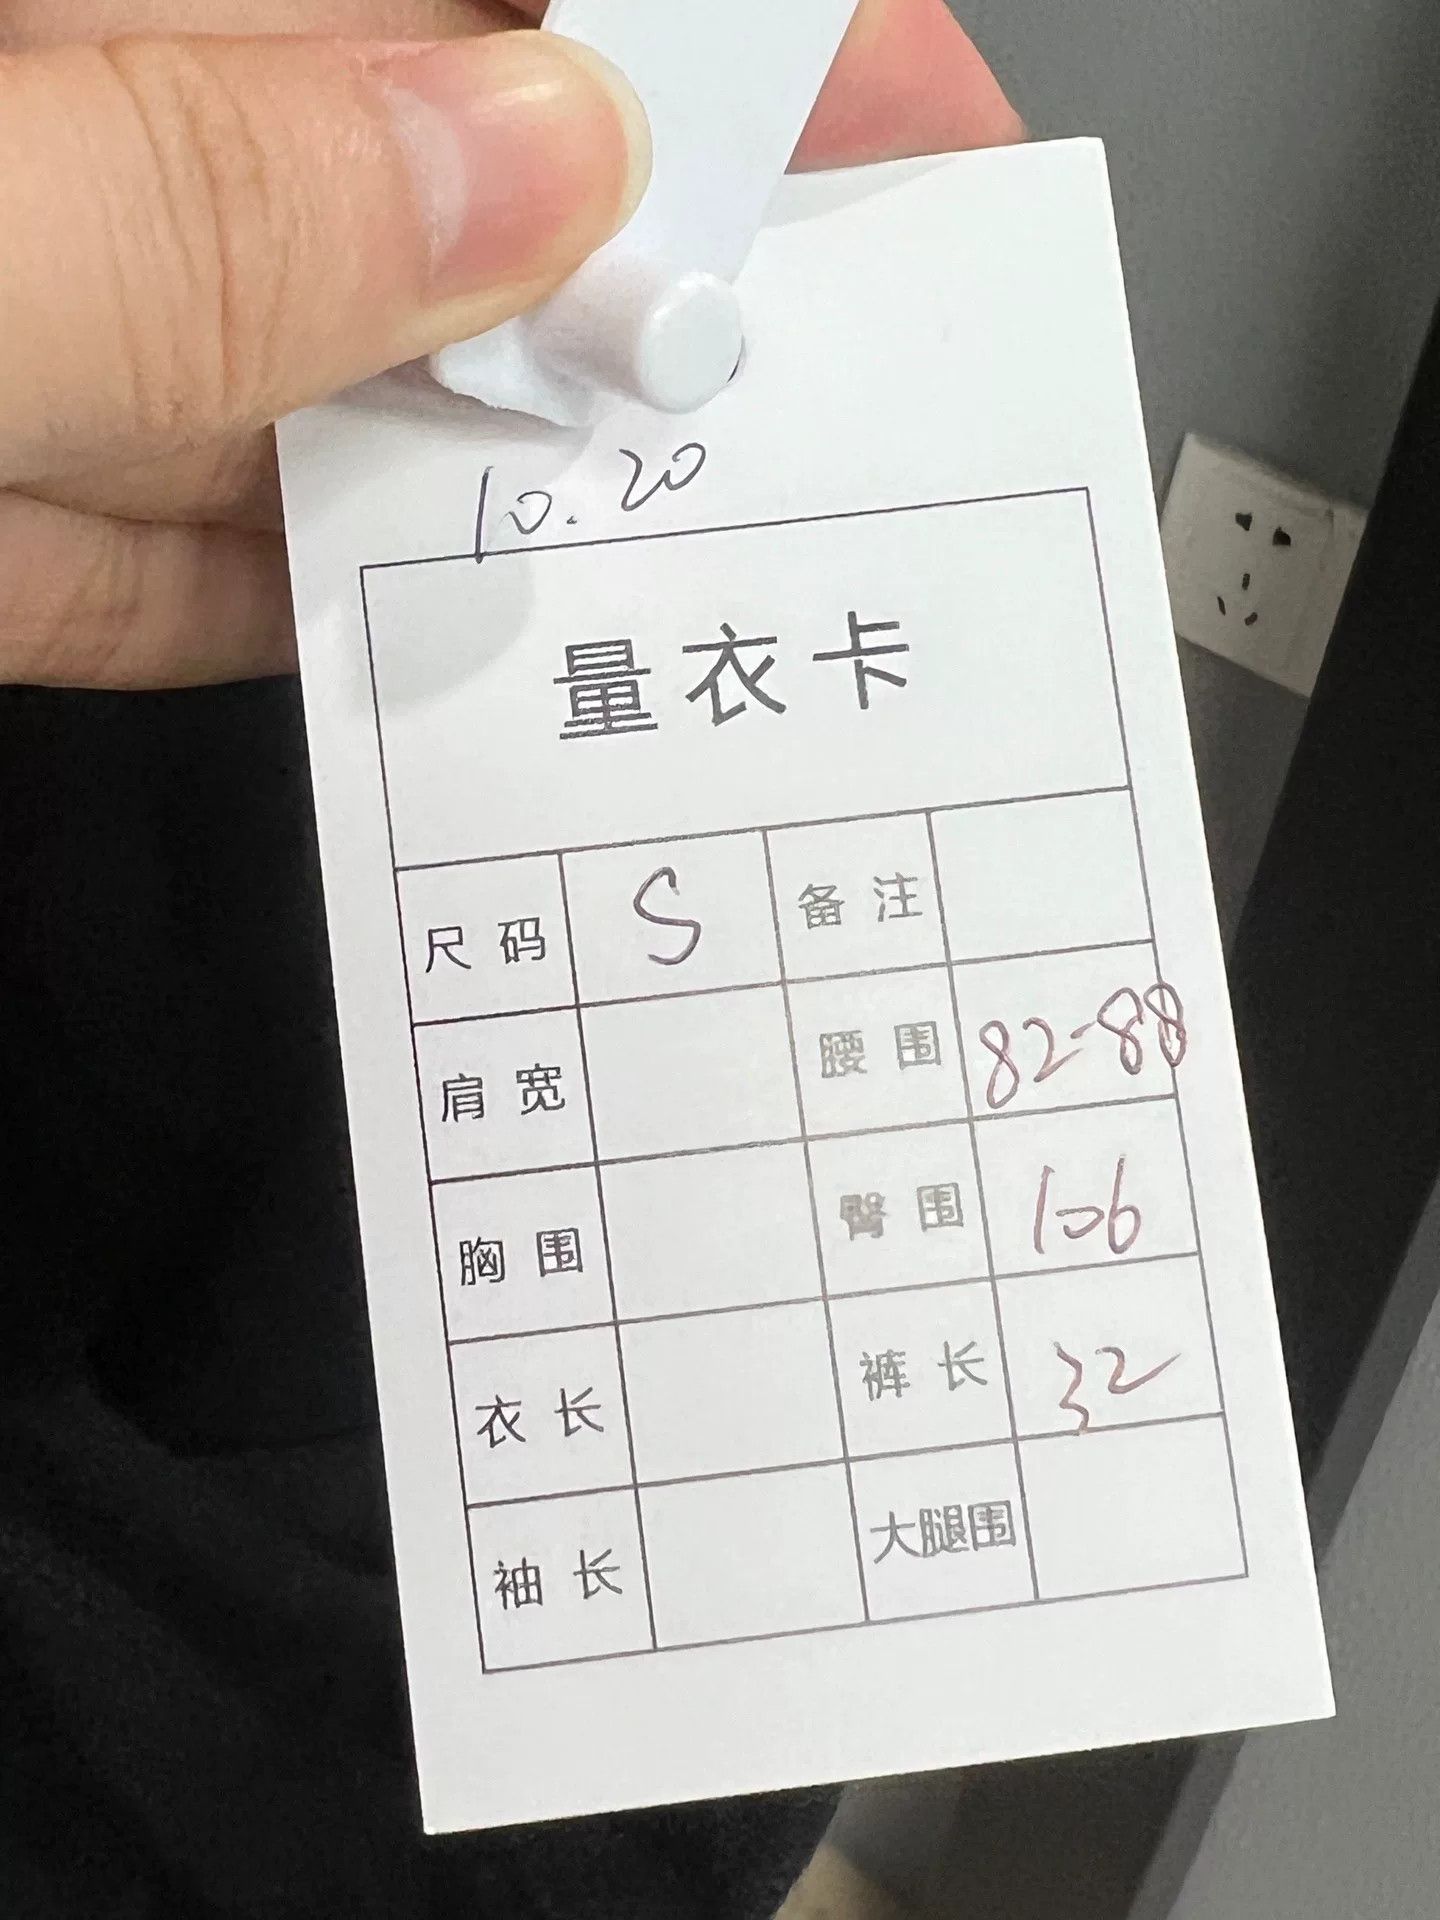 10.20
量衣卡
尺码 S 备注
肩宽 腰围 82-88
胸围 臀围 106
衣长 裤长 32
袖长 大腿围